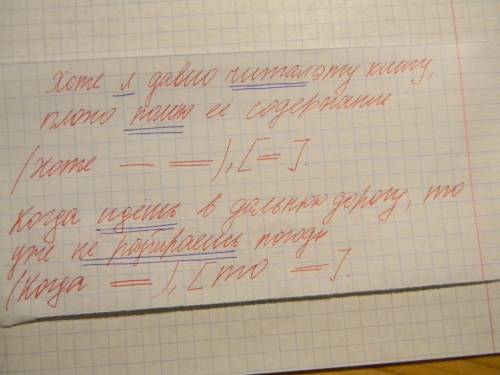 Хоте я давно читал эту книгу,
плохо помню её содержание
(хоте — =), [=].
Когда идёшь в дальнюю дорогу, то
уже не разбираешь погоды
(Когда =), [то =].